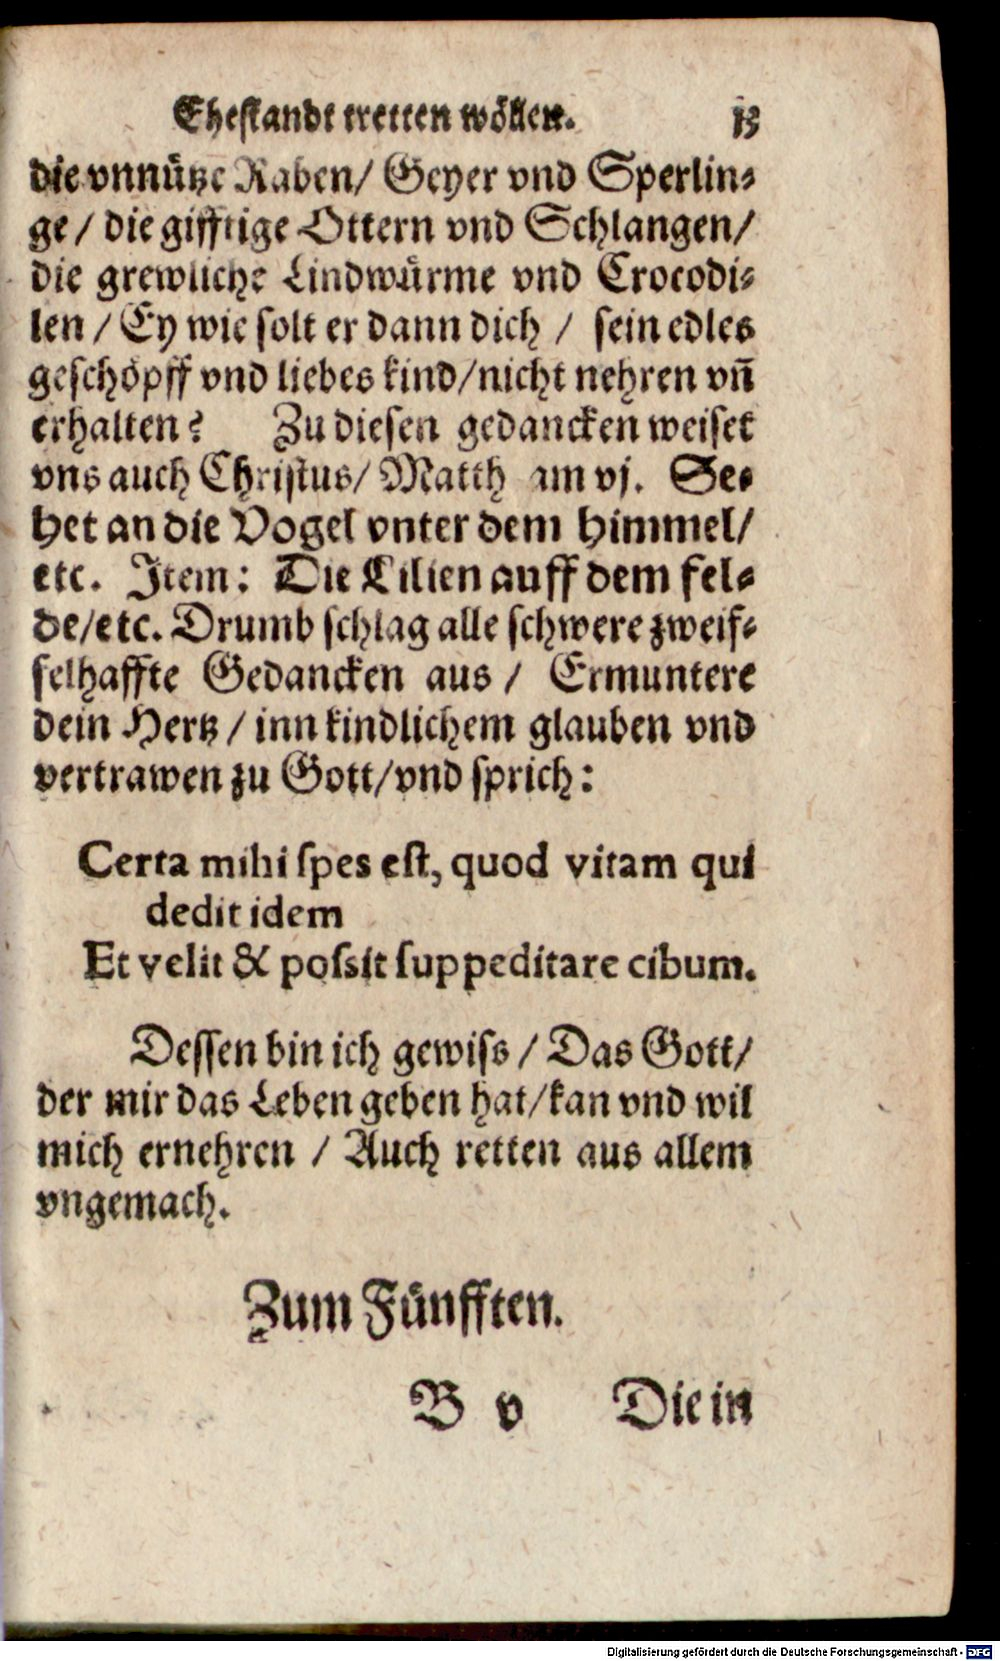 Eheſtandt tretten wöllen. 13
die vnnütze Raben/ Geyer vnd Sperlin⸗
ge / die gifftige Ottern vnd Schlangen/
die grewliche Lindwürme vnd Crocodi⸗
len / Ey wie ſolt er dann dich / ſein edles
geſchöpff vnd liebes kind/nicht nehren vñ
erhalten? Zu dieſen gedancken weiſet
vns auch Chriſtus/ Matth am vj. Se⸗
het an die Vogel vnter dem Himmel/
etc. Item: Die Lilien auff dem fel⸗
de/etc. Drumb ſchlag alle ſchwere zweif⸗
felhaffte Gedancken aus / Ermuntere
dein Hertz / inn kindlichem glauben vnd
vertrawen zu Gott/vnd ſprich:
Certa mihi ſpes eſt, quod vitam qui
dedit idem
Et velit & poſsit ſuppeditare cibum.
Deſſen bin ich gewiſs / Das Gott/
der mir das Leben geben hat/kan vnd wil
mich ernehren / Auch retten aus allem
vngemach.
Zum Fünfften.
B v Die in
Digitalisierung gefördert durch die Deutsche Forschungsgemeinschaft - DFG